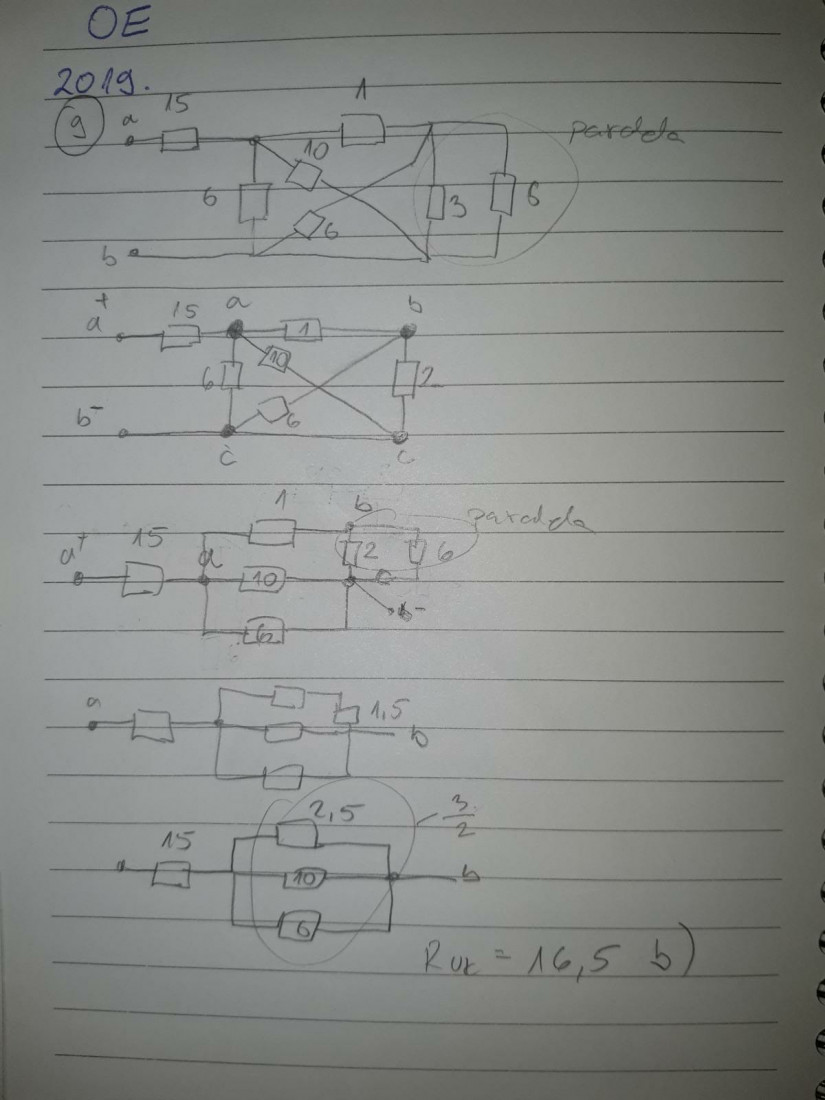 OE
2019.
9 a 15 1 paralela
10
6 6 3 6
b
a+ 15 a b
1
6 10 2
6
b- c c
1 b paralela
a+ 15 a 2 6
10 c
b-
6
a 1,5
b
2,5 3/2
15
10 b
6
Ruk = 16,5 b)